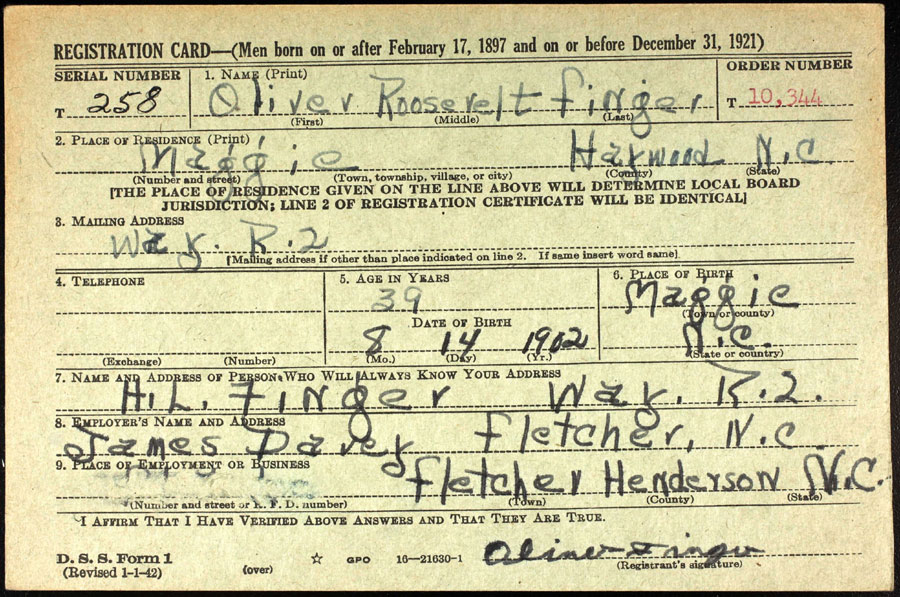 REGISTRATION CARD—(Men born on or after February 17, 1897 and on or before December 31, 1921)
SERIAL NUMBER
1. NAME (Print)
ORDER NUMBER
T 258
Oliver Roosevelt Finger
T 10,344
(First) (Middle) (Last)
2. PLACE OF RESIDENCE (Print)
Maggie Haywood N.C.
(Number and street) (Town, township, village, or city) (County) (State)
[THE PLACE OF RESIDENCE GIVEN ON THE LINE ABOVE WILL DETERMINE LOCAL BOARD
JURISDICTION; LINE 2 OF REGISTRATION CERTIFICATE WILL BE IDENTICAL]
3. MAILING ADDRESS
Way. R.2
[Mailing address if other than place indicated on line 2. If same insert word same]
4. TELEPHONE
5. AGE IN YEARS
6. PLACE OF BIRTH
39
Maggie
(Town or county)
DATE OF BIRTH
8 14 1902
N.C.
(Exchange) (Number)
(Mo.) (Day) (Yr.)
(State or country)
7. NAME AND ADDRESS OF PERSON WHO WILL ALWAYS KNOW YOUR ADDRESS
H.L. Finger Way. R.2.
8. EMPLOYER'S NAME AND ADDRESS
James Davey Fletcher, N.C.
9. PLACE OF EMPLOYMENT OR BUSINESS
Fletcher Henderson N.C.
(Number and street or R. F. D. number) (Town) (County) (State)
I AFFIRM THAT I HAVE VERIFIED ABOVE ANSWERS AND THAT THEY ARE TRUE.
D. S. S. Form 1
(Revised 1-1-42)
(over)
☆ GPO 16—21630-1
Oliver Finger
(Registrant's signature)